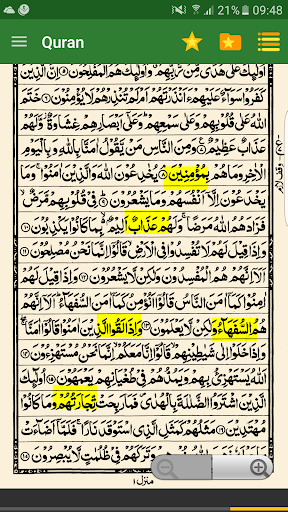 21% 09:48
Quran
اُولٰٓئِكَ عَلٰى هُدًى مِّنْ رَّبِّهِمْ وَاُولٰٓئِكَ هُمُ الْمُفْلِحُوْنَ اِنَّ الَّذِيْنَ
كَفَرُوْا سَوَآءٌ عَلَيْهِمْ ءَاَنْذَرْتَهُمْ اَمْ لَمْ تُنْذِرْهُمْ لَا يُؤْمِنُوْنَ خَتَمَ
اللّٰهُ عَلٰى قُلُوْبِهِمْ وَعَلٰى سَمْعِهِمْ وَعَلٰٓى اَبْصَارِهِمْ غِشَاوَةٌ وَّلَهُمْ
عَذَابٌ عَظِيْمٌ وَمِنَ النَّاسِ مَنْ يَّقُوْلُ اٰمَنَّا بِاللّٰهِ وَبِالْيَوْمِ
الْاٰخِرِ وَمَا هُمْ بِمُؤْمِنِيْنَ يُخٰدِعُوْنَ اللّٰهَ وَالَّذِيْنَ اٰمَنُوْا وَمَا
يَخْدَعُوْنَ اِلَّآ اَنْفُسَهُمْ وَمَا يَشْعُرُوْنَ فِيْ قُلُوْبِهِمْ مَّرَضٌ
فَزَادَهُمُ اللّٰهُ مَرَضًا وَلَهُمْ عَذَابٌ اَلِيْمٌ بِمَا كَانُوْا يَكْذِبُوْنَ
وَاِذَا قِيْلَ لَهُمْ لَا تُفْسِدُوْا فِى الْاَرْضِ قَالُوْٓا اِنَّمَا نَحْنُ مُصْلِحُوْنَ
اَلَآ اِنَّهُمْ هُمُ الْمُفْسِدُوْنَ وَلٰكِنْ لَّا يَشْعُرُوْنَ وَاِذَا قِيْلَ لَهُمْ
اٰمِنُوْا كَمَآ اٰمَنَ النَّاسُ قَالُوْٓا اَنُؤْمِنُ كَمَآ اٰمَنَ السُّفَهَآءُ اَلَآ اِنَّهُمْ
هُمُ السُّفَهَآءُ وَلٰكِنْ لَّا يَعْلَمُوْنَ وَاِذَا لَقُوا الَّذِيْنَ اٰمَنُوْا قَالُوْٓا اٰمَنَّا
وَاِذَا خَلَوْا اِلٰى شَيٰطِيْنِهِمْ قَالُوْٓا اِنَّا مَعَكُمْ اِنَّمَا نَحْنُ مُسْتَهْزِءُوْنَ
اَللّٰهُ يَسْتَهْزِئُ بِهِمْ وَيَمُدُّهُمْ فِيْ طُغْيَانِهِمْ يَعْمَهُوْنَ اُولٰٓئِكَ
الَّذِيْنَ اشْتَرَوُا الضَّلٰلَةَ بِالْهُدٰى فَمَا رَبِحَتْ تِّجَارَتُهُمْ وَمَا كَانُوْا
مُهْتَدِيْنَ مَثَلُهُمْ كَمَثَلِ الَّذِى اسْتَوْقَدَ نَارًا فَلَمَّآ اَضَآءَتْ
وَتَرَكَهُمْ فِيْ ظُلُمٰتٍ لَّا يُبْصِرُوْنَ
منزل ١